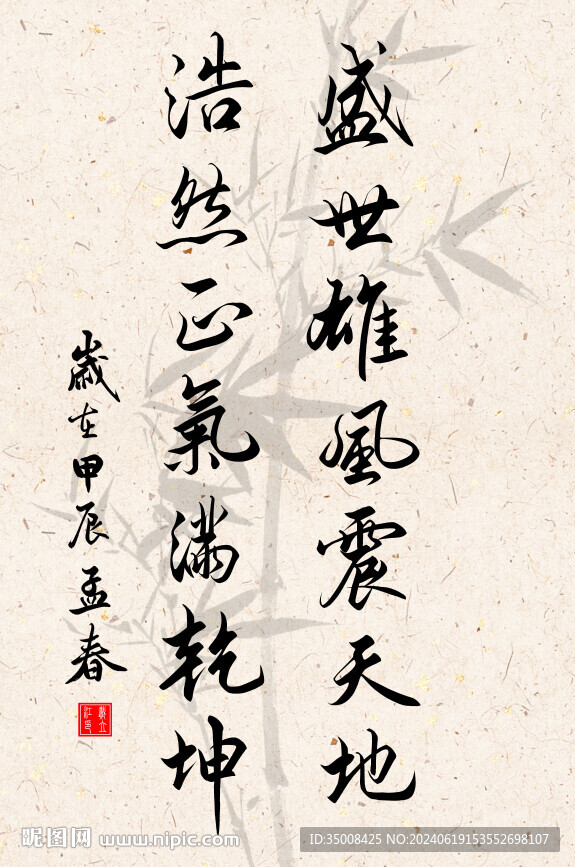 盛世雄風震天地
浩然正氣滿乾坤
歲在甲辰孟春
昵图网 www.nipic.com
ID:35008425 NO:20240619153552698107